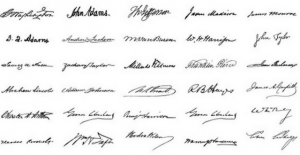 G Washington John Adams. Th Jefferson James Madison James Monroe
J. Q. Adams Andrew Jackson M Van Buren W. H. Harrison John Tyler
James K Polk Zachary Taylor Millard Fillmore Franklin Pierce James Buchanan
Abraham Lincoln Andrew Johnson U.S. Grant R B Hayes James A Garfield
Chester A Arthur Grover Cleveland Benj Harrison Grover Cleveland
Theodore Roosevelt Wm H Taft Woodrow Wilson Warren G Harding Calvin Coolidge